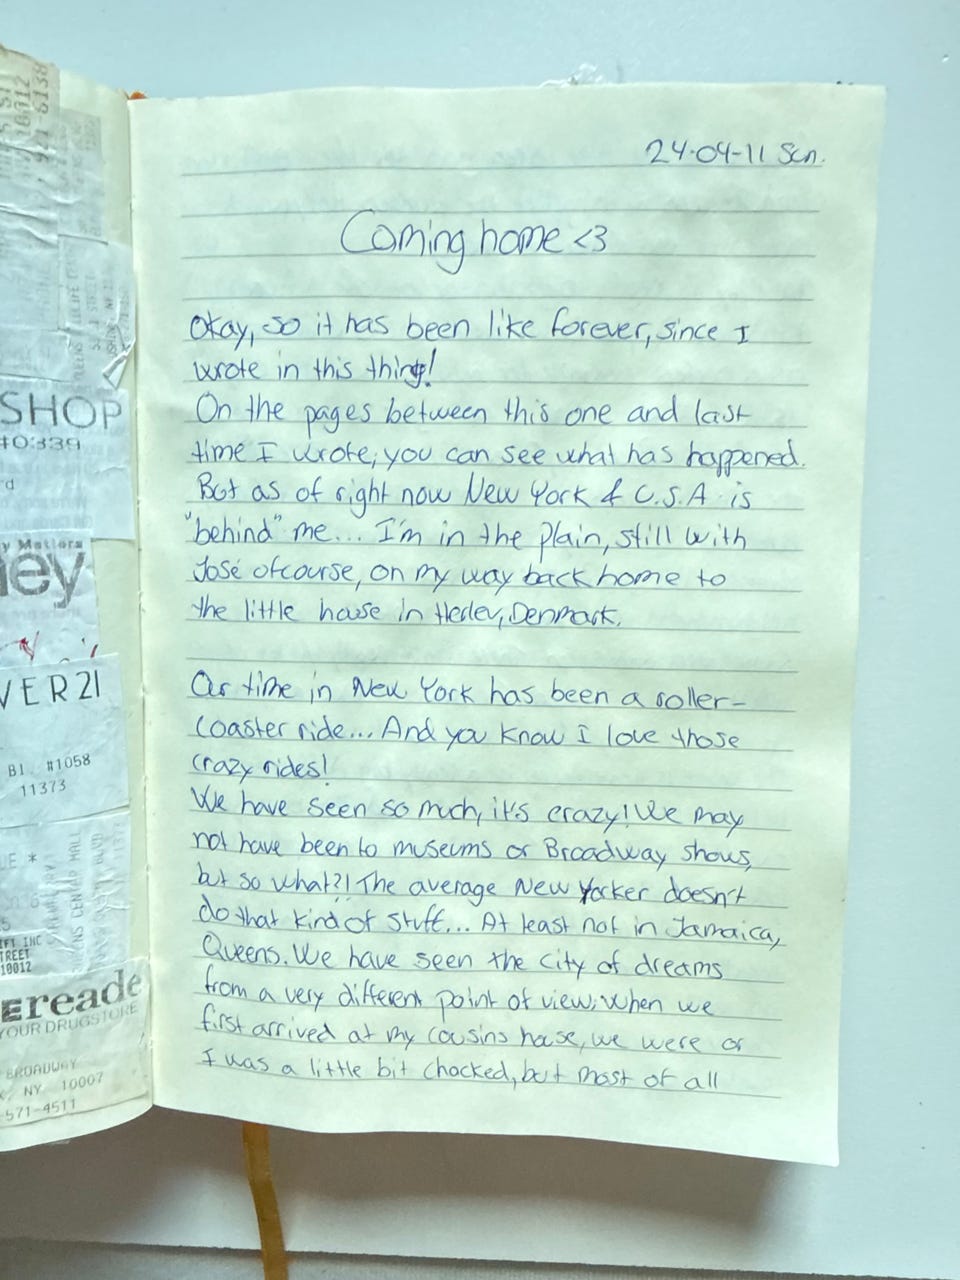 24-04-11 Sun.
Coming home <3
Okay, so it has been like forever, since I
wrote in this thing!
On the pages between this one and last
time I wrote, you can see what has happened.
But as of right now New York & U.S.A. is
"behind" me... I'm in the plain, still with
José ofcourse, on my way back home to
the little house in Hedev, Denmark.
Our time in New York has been a roller-
coaster ride... And you know I love those
crazy rides!
We have seen so much, it's crazy! We may
not have been to museums or Broadway shows,
but so what?! The average New Yorker doesn't
do that kind of stuff... At least not in Jamaica,
Queens. We have seen the city of dreams
from a very different point of view; when we
first arrived at my cousins house, we were or
I was a little bit chocked, but most of all
10012
SHOP
#0339
d
y Matters
ney
VER21
BI #1058
11373
UE *
IFT INC
TREET
10012
Ereade
YOUR DRUGSTORE
BROADWAY
NY 10007
-571-4511